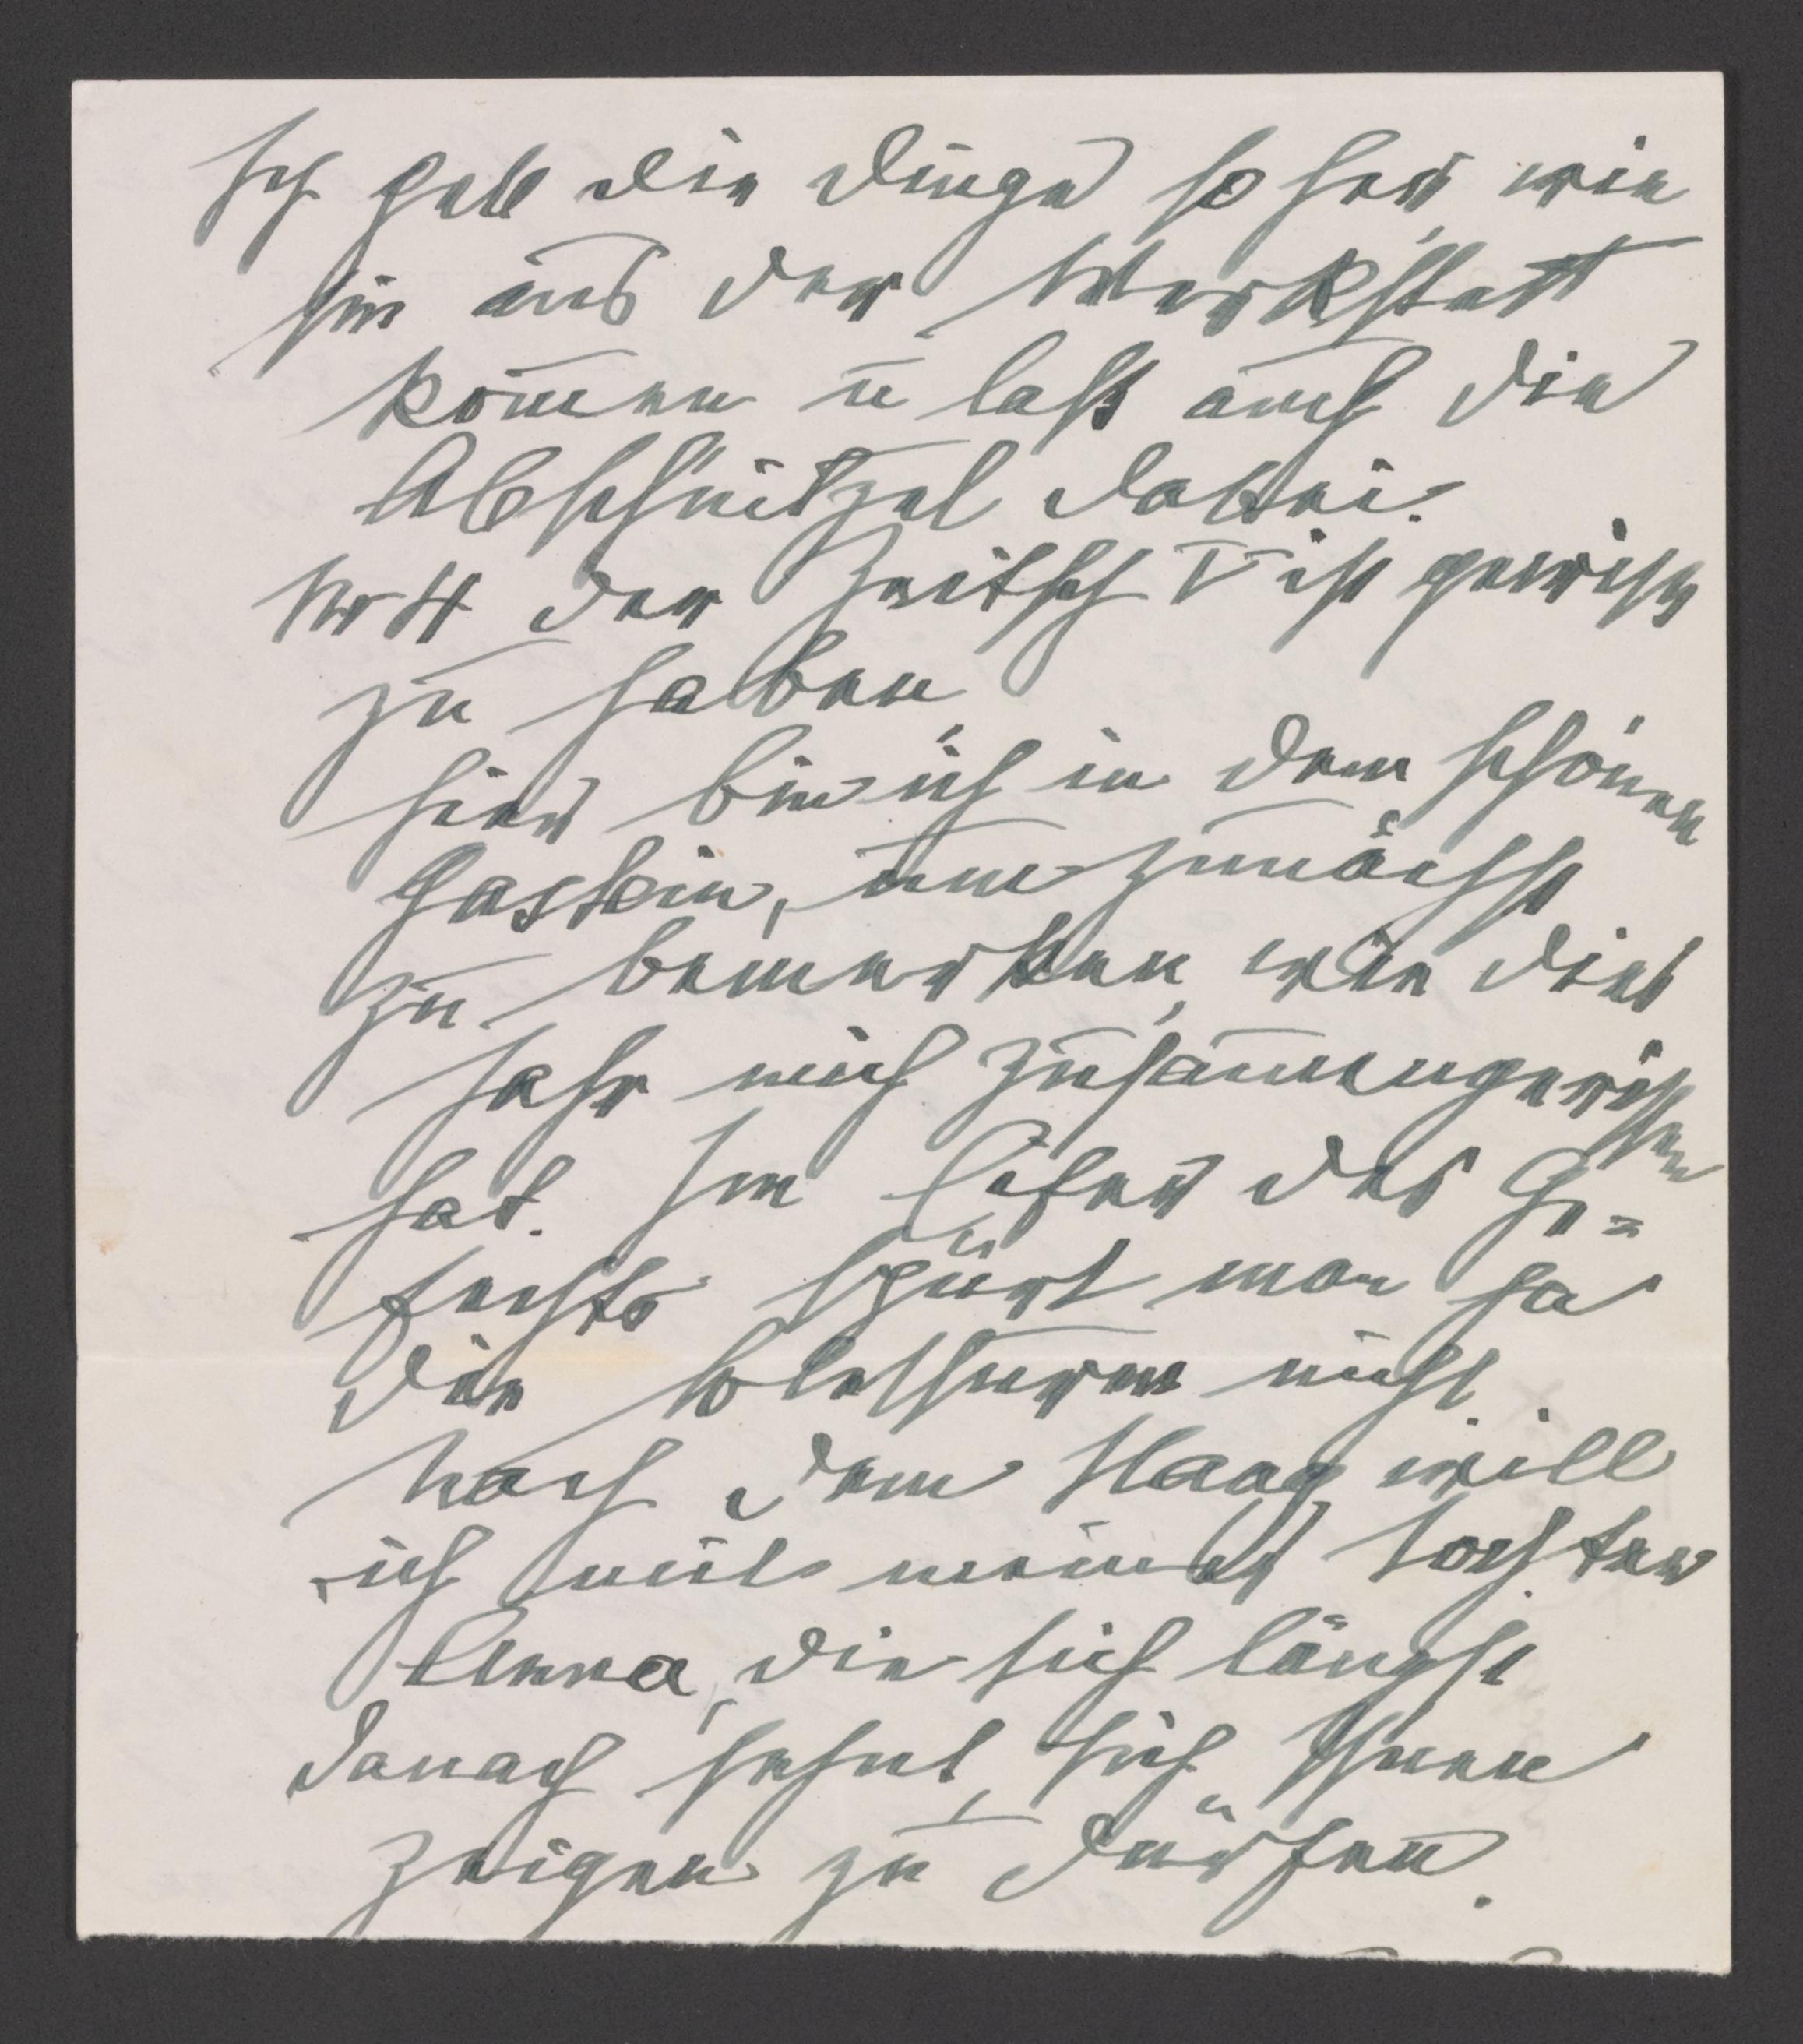 Ich geb die Dinge so her, wie
sie aus der Werkstatt
kom̄en u laß auch die
Abschnitzel dabei.
Nr 4 der Zeitsch V ist gewiß
zu haben
Hier bin ich in dem schönen
Gastein, um zunächst
zu bemerken, wie dies
Jahr mich zusam̄engerissen
hat. Im Eifer des Ge=
fechts spürt man ja
die Blessuren nicht.
Nach dem Haag will
ich mit meiner Tochter
Anna, die sich längst
danach sehnt, sich Ihnen
zeigen zu dürfen.